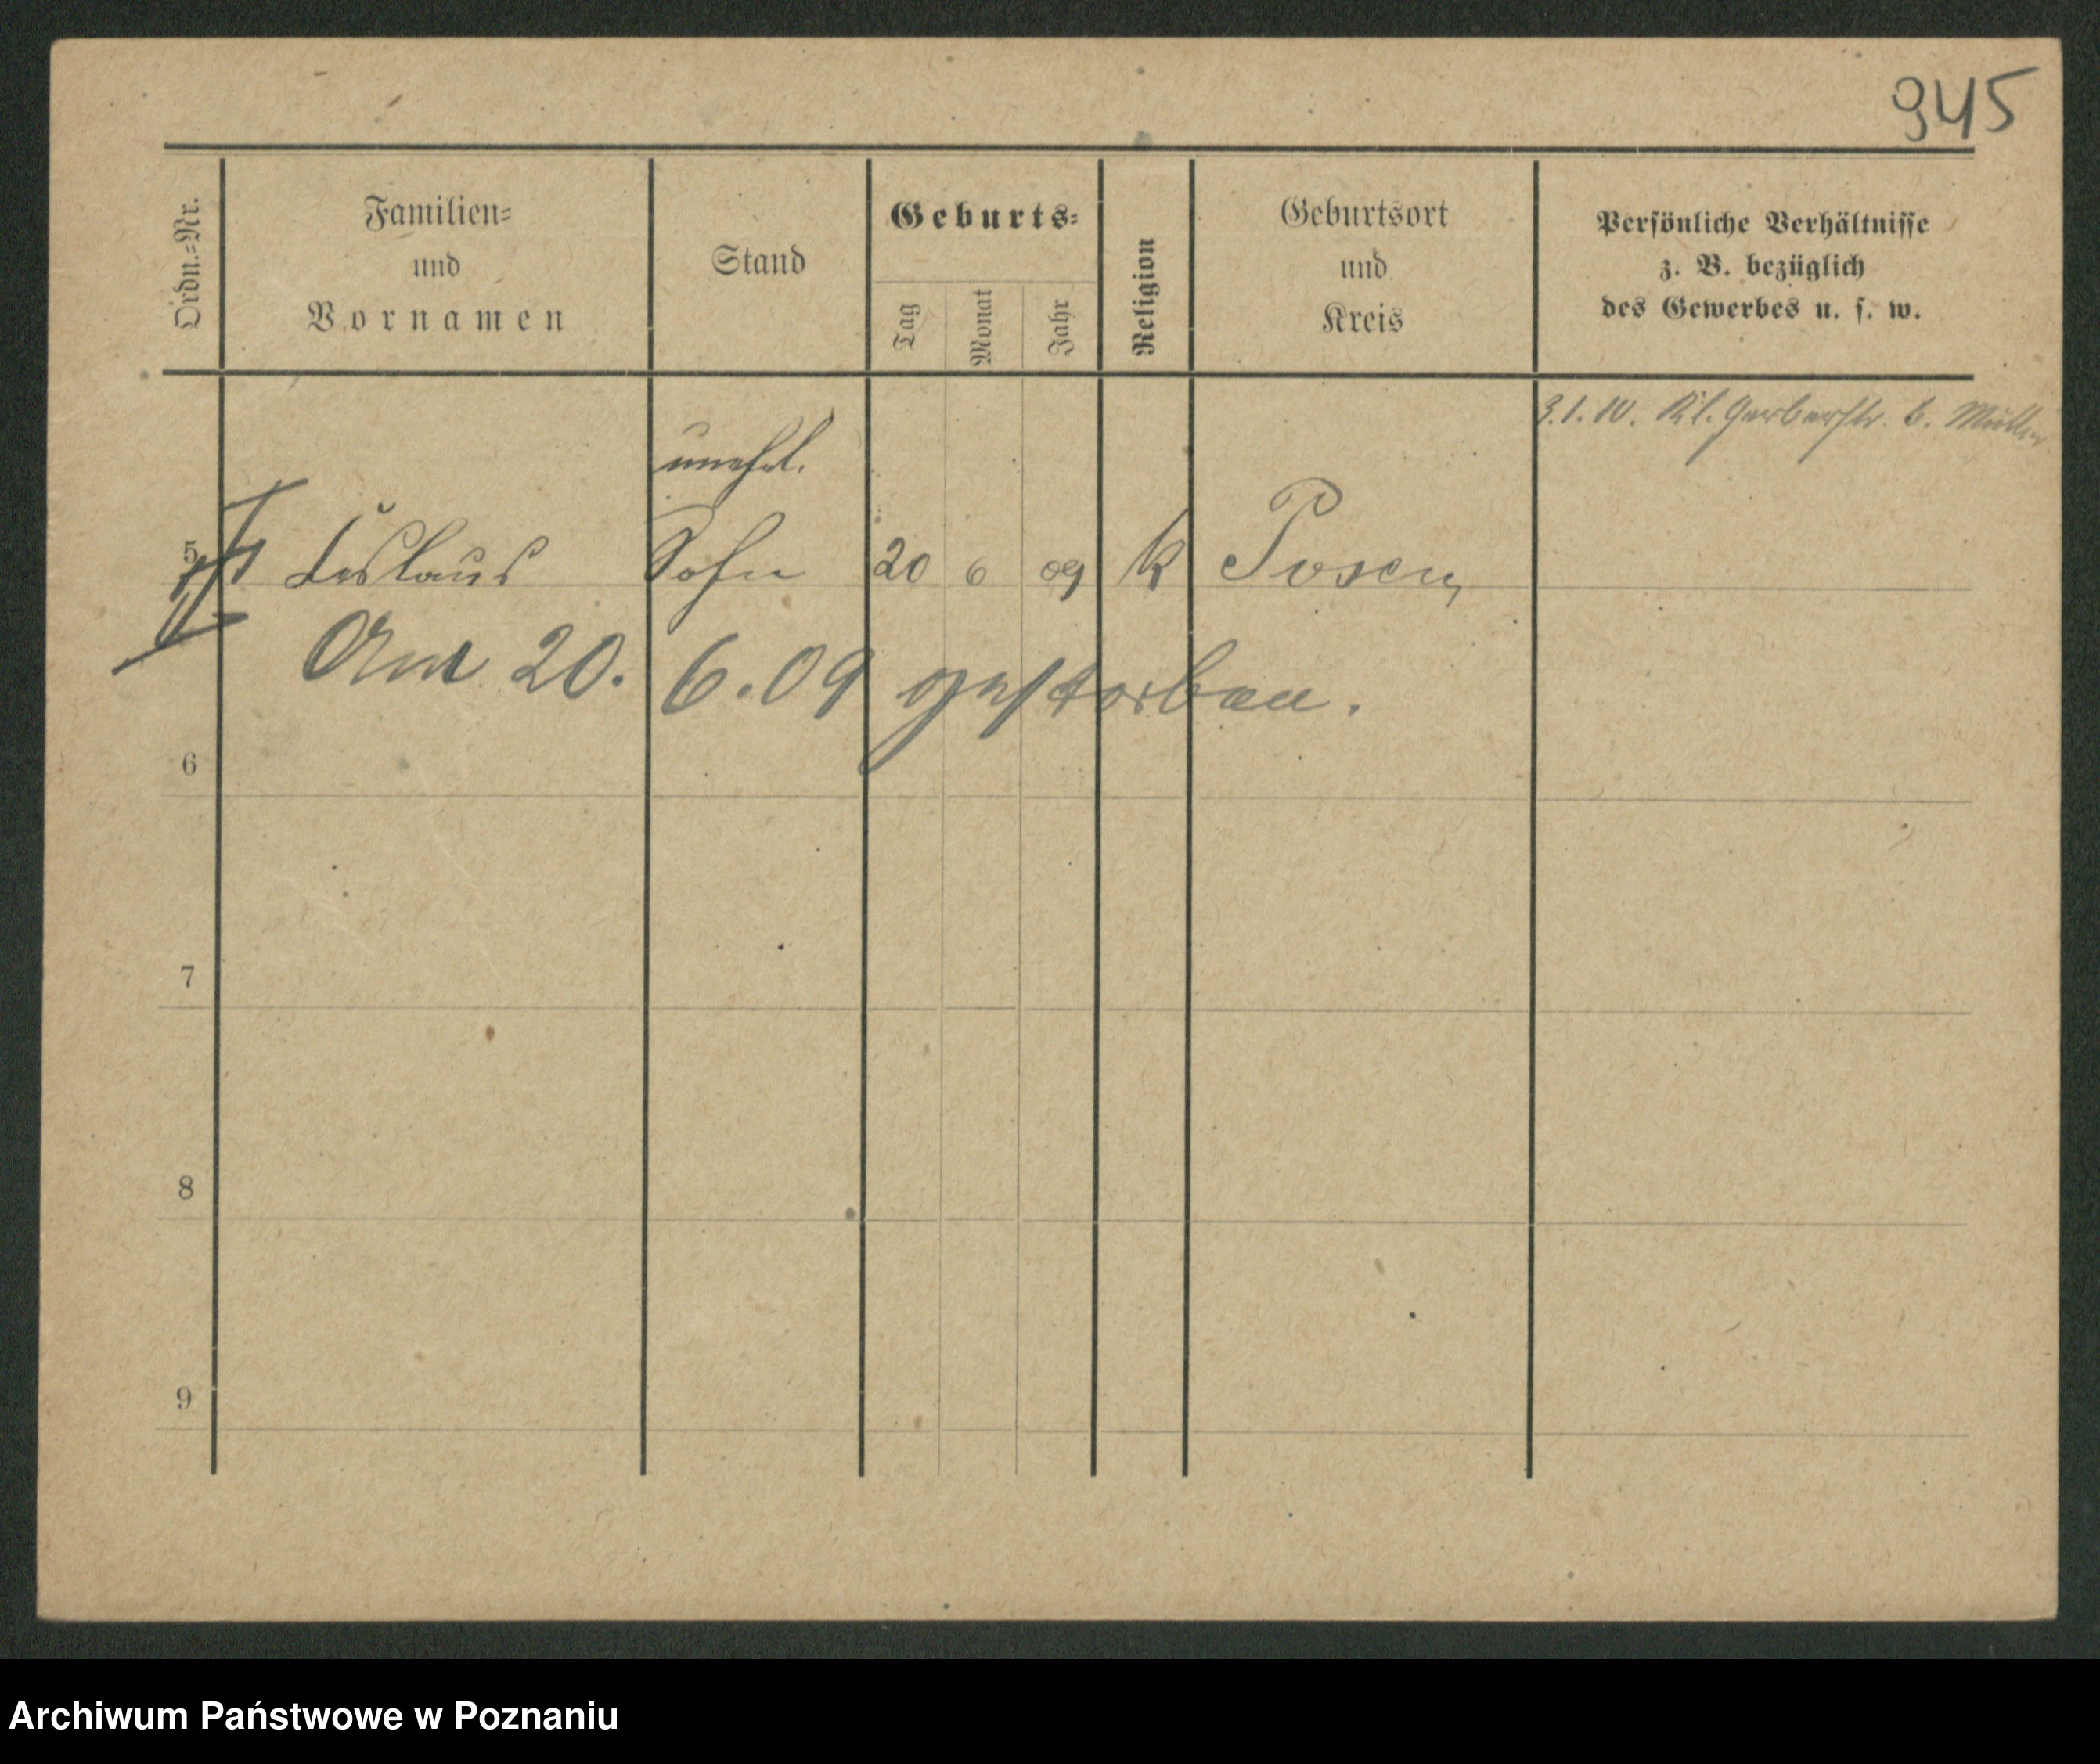 945
Ordn.=Nr.
Familien=
und
Vornamen
Stand
Geburts=
Tag
Monat
Jahr
Religion
Geburtsort
und
Kreis
Persönliche Verhältnisse
z. B. bezüglich
des Gewerbes u. s. w.
3.1.10. Kl. Gerberstr. 6. Müller
unehel.
5 Leslaus Sohn 20 6 09 k Posen
Am 20. 6. 09 gestorben.
6
7
8
9
Archiwum Państwowe w Poznaniu